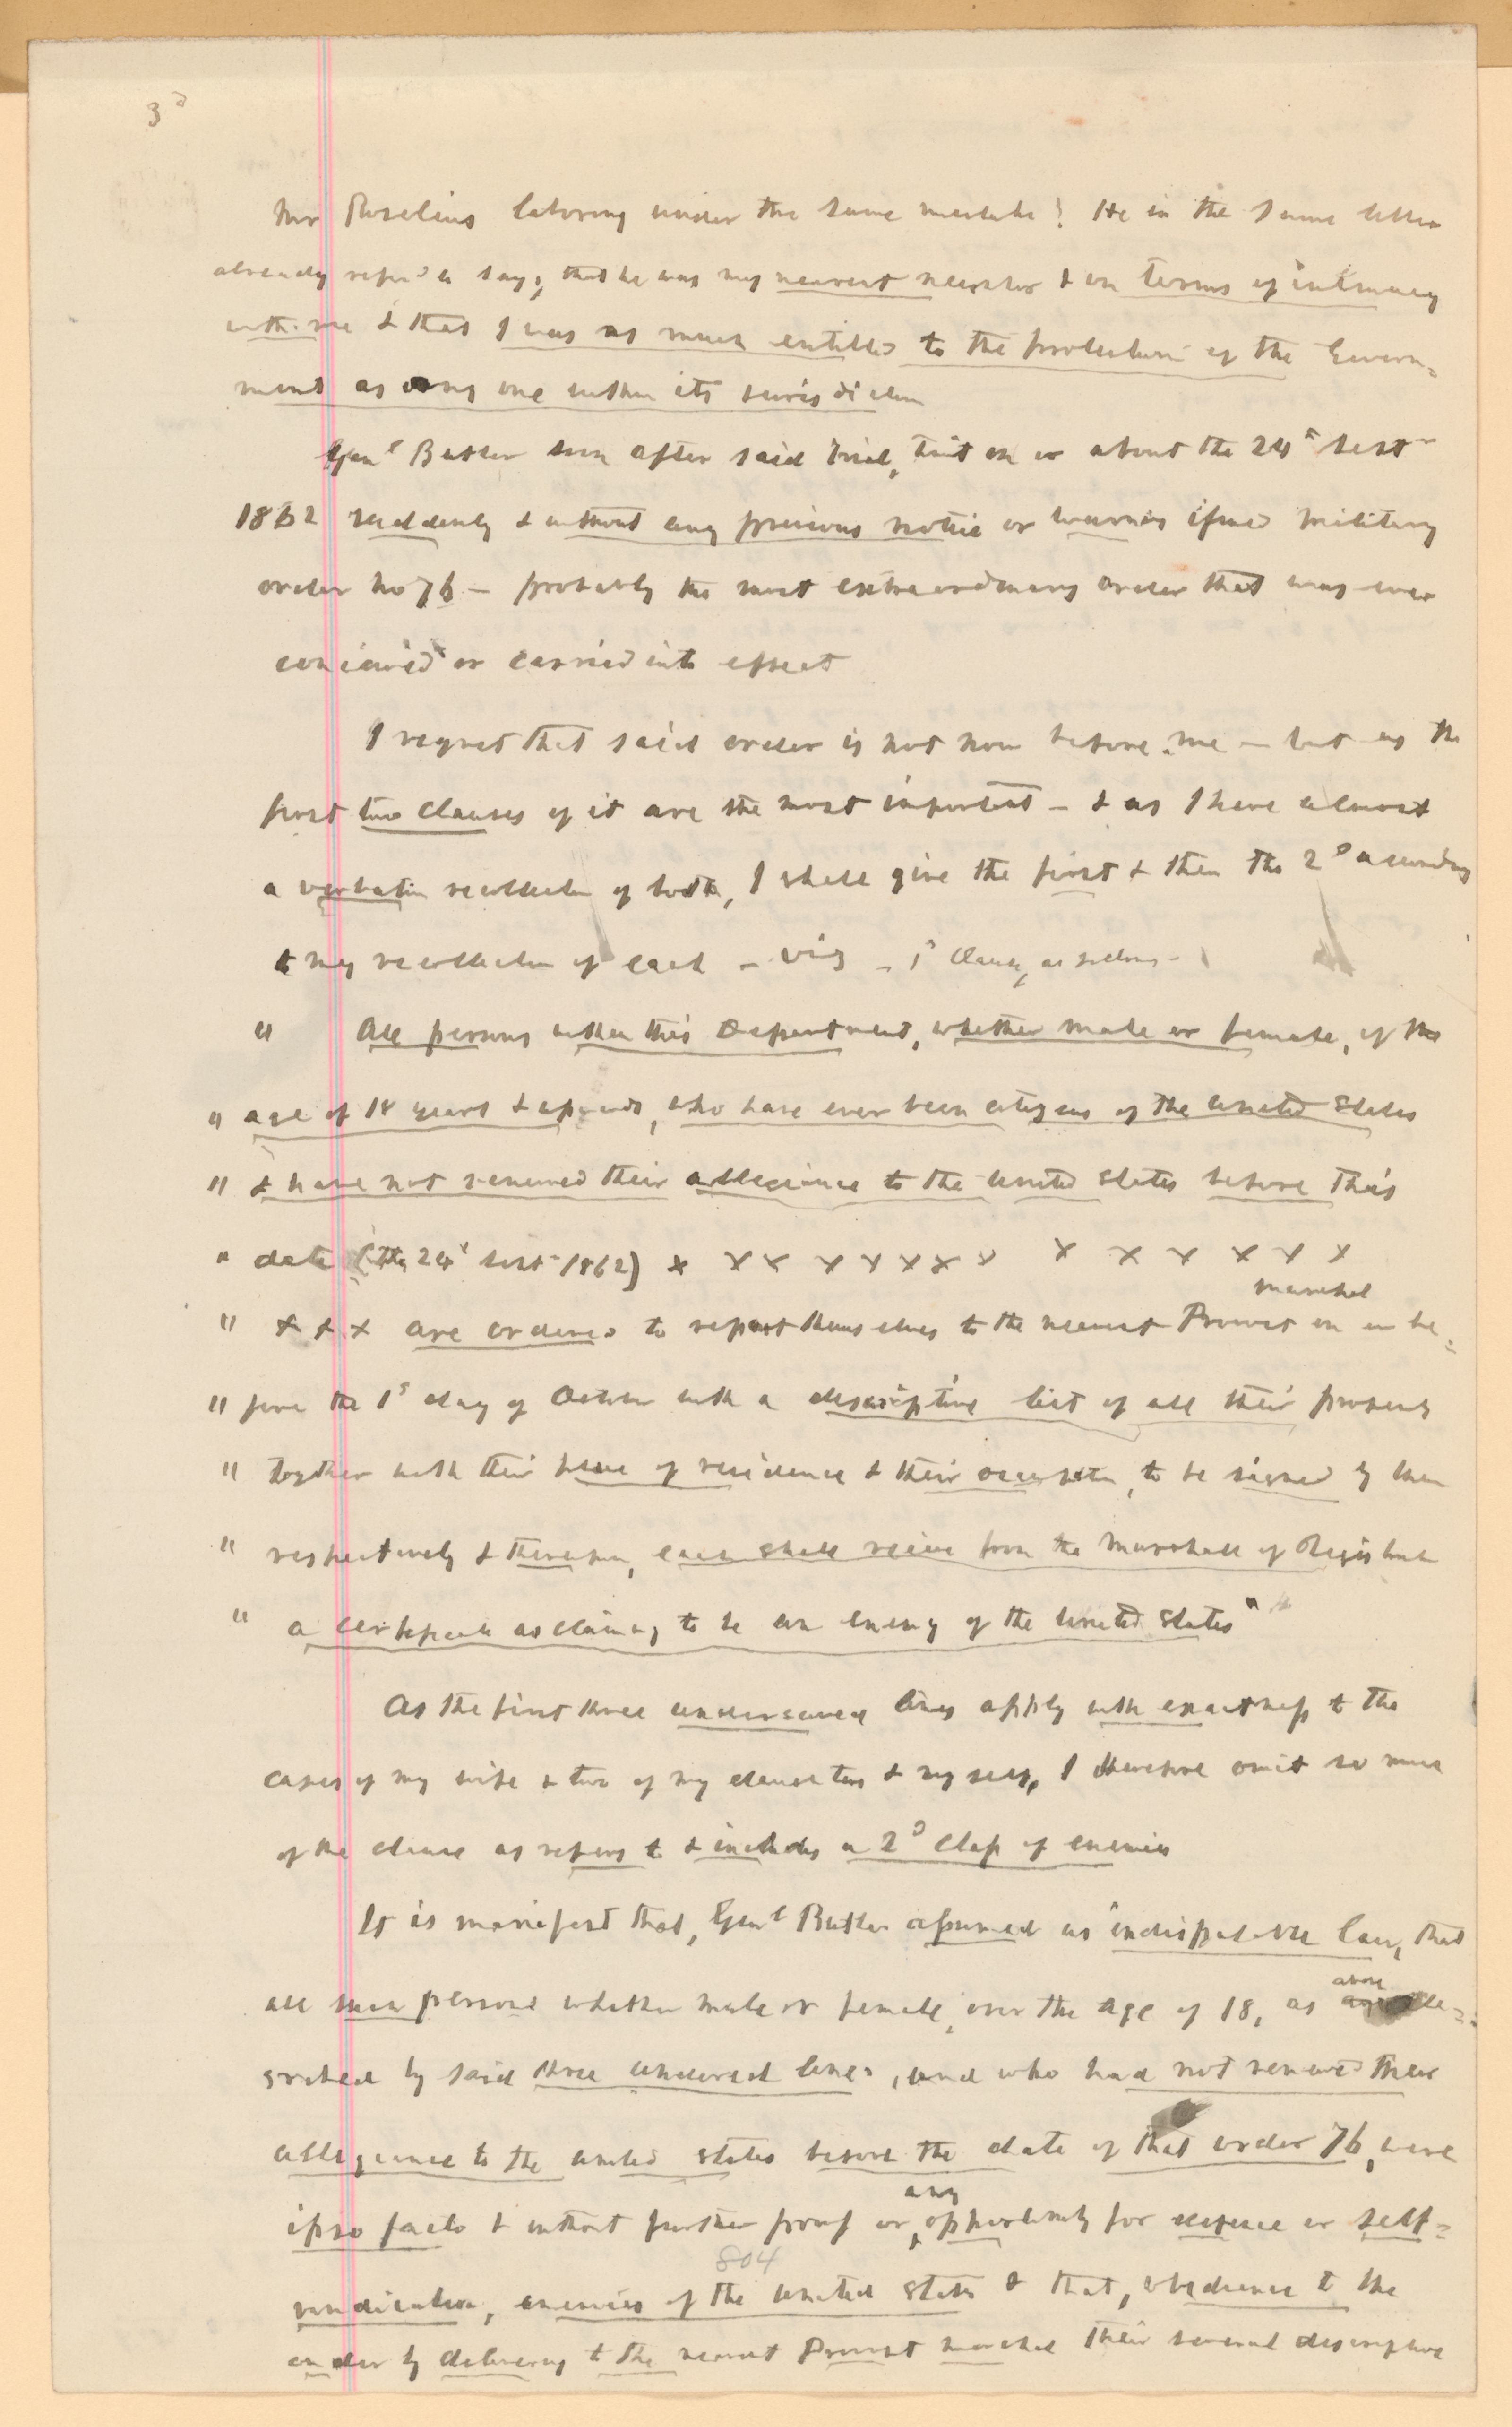 3d
Mr Roselius laboring under the same mistake? He in the same letter
already refer'd to says, that he was my nearest neighbor & on terms of intimacy
with me & that I was as much entitled to the protection of the Govern=
ment as any one within its jurisdiction
Genl Butler soon after said trial, but on or about the 24t Sept
1862 suddenly & without any previous notice or warning issued Military
order No 76 — probably the most extraordinary order that was ever
conceived or carried into effect
I regret that said order is not now before me — but as the
first two clauses of it are the most important — & as I have almost
a verbatim recollection of both, I shall give the first & then the 2d according
to my recollection of each — viz — 1s Clause, as follows —
" All persons within this Department, whether male or female, of the
" age of 18 years & upwards, who have ever been citizens of the United States
" & have not renewed their allegiance to the United States before this
" date (the 24t Sept 1862) x x x x x x x x x x x x x x
" x x x are ordered to report themselves to the nearest Provost marshal on or be=
" fore the 1s day of October with a descriptive list of all their property
" together with their place of residence & their occupation, to be signed by them
" respectively & thereupon, each shall receive from the Marshall of Registrate
" a certificate as claiming to be an enemy of the United States"
As the first three underscored lines apply with exactness to the
cases of my wife & two of my daughters & myself, I therefore omit so much
of the clause as refers to & includes a 2d Class of enemies
It is manifest that, Genl Butler assumed as indisputable law, that
all such persons whether male or female, over the age of 18, as above de=
scribed by said three underscd lines, and who had not renewed their
allegiance to the United States before the date of that order 76, were
ipso facto & without further proof or any opportunity for defence or self=
vindication, enemies of the United States & that, obedience to the
order by delivering to the nearest Provost marshal their several descriptive
804